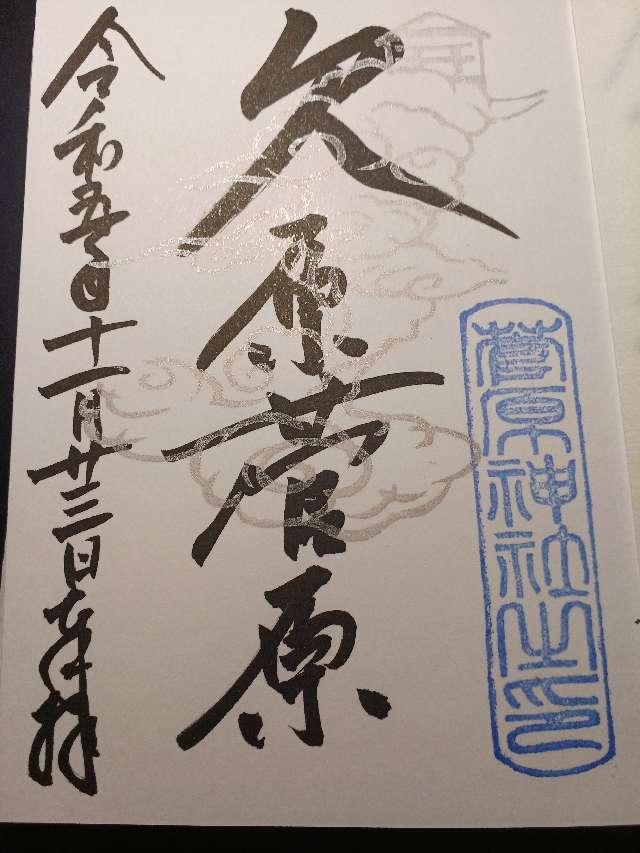 菅原神社之印
久原菅原
令和五年十一月廿三日奉拝